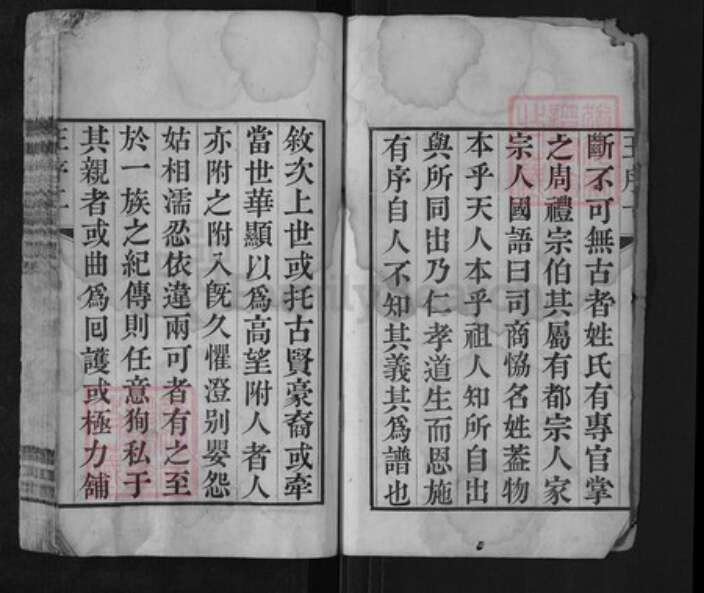 斷不可無古者姓氏有專官掌
之周禮宗伯其屬有都宗人家
宗人國語曰司商恊名姓蓋物
本乎天人本乎祖人知所自出
與所同出乃仁孝道生而恩施
有序自人不知其義其為譜也
敘次上世或托古賢豪裔或牽
當世華顯以為高望附人者人
亦附之附入旣久懼澄别嬰怨
姑相濡忍依違兩可者有之至
於一族之紀傳則任意狥私于
其親者或曲為回護或極力舖
王序二